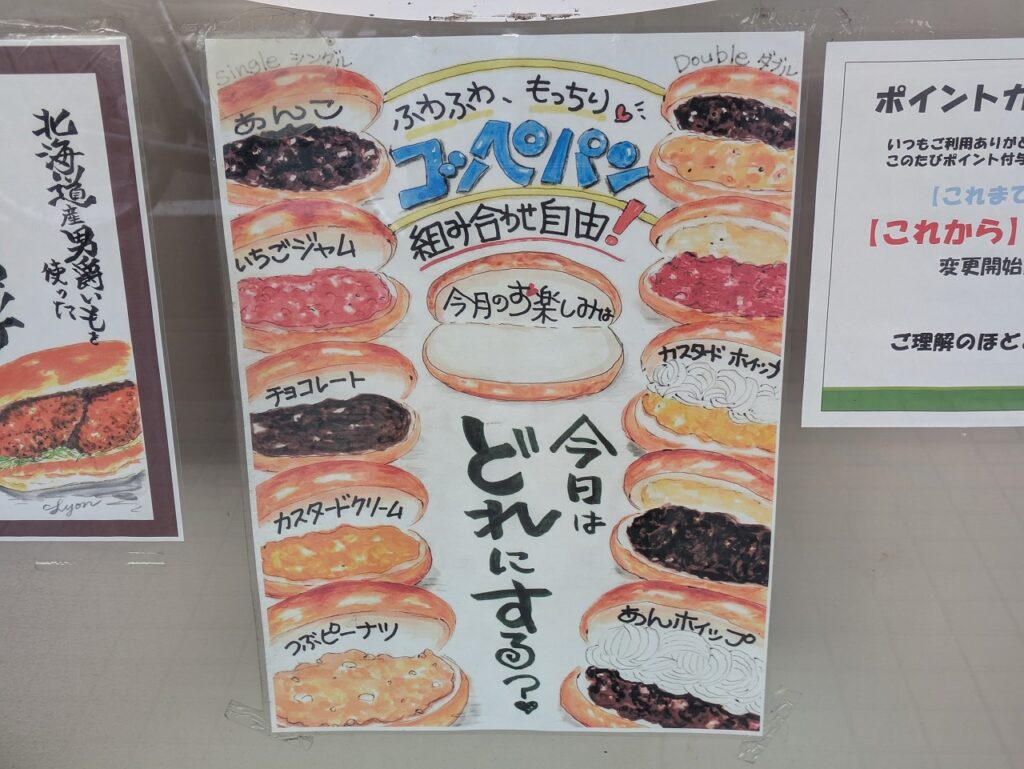 北海道産男爵いもを
使った
Lyon
Single シングル
Double ダブル
ふわふわ、もっちり
コッペパン
組み合わせ自由!
あんこ
いちごジャム
チョコレート
カスタードクリーム
つぶピーナツ
今月のお楽しみは
カスタードホイップ
あんホイップ
今日は
どれにする?
ポイントカ
いつもご利用ありがと
このたびポイント付与
【これまで
【これから】
変更開始
ご理解のほど